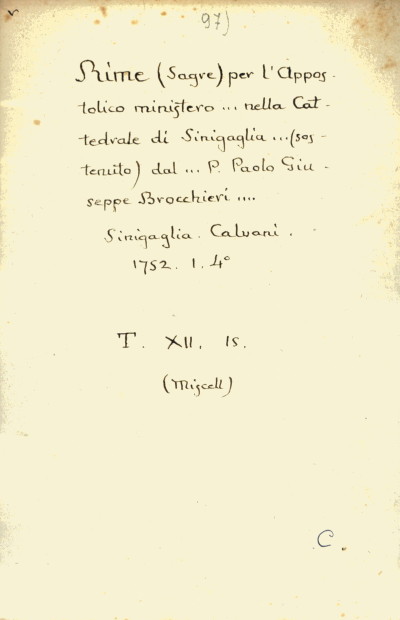 97)
Rime (Sagre) per l'Appos-
tolico ministero ... nella Cat-
tedrale di Sinigaglia ... (sos-
tenuto) dal ... P. Paolo Giu-
seppe Brocchieri ....
Sinigaglia. Calvani.
1752. 1. 4°
T. XII. 15.
(Miscell)
C.